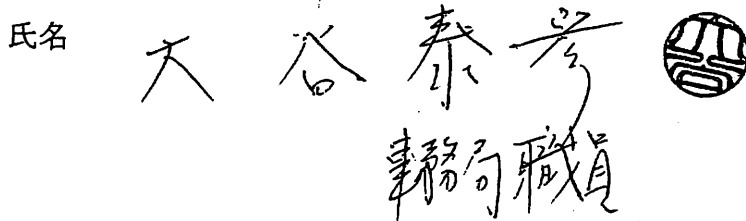 氏名 大谷泰彦
事務局職員